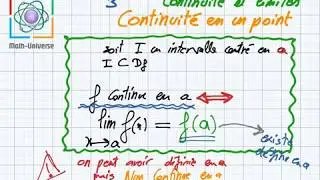 3 Continuité et limites
Continuité en un point
Math-Universe
soit I un intervalle centré en a
I ⊂ Df
f continue en a ⟺
lim f(x) = f(a)
x→a
existe
définie en a
on peut avoir définie en a
mais Non continue en a